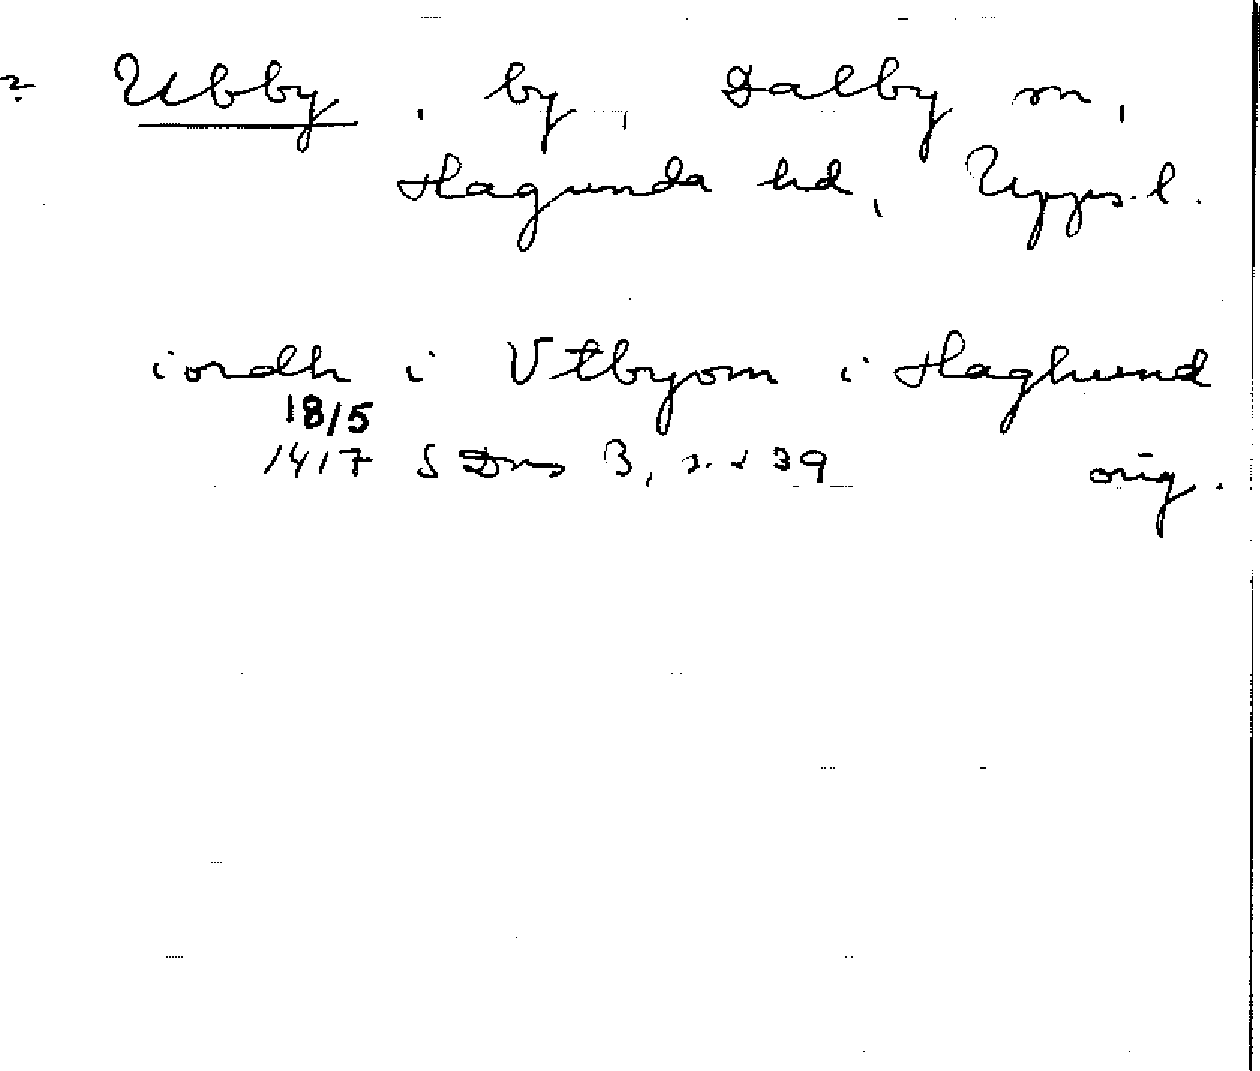 ? Ubby, by, Dalby sn,
Hagunda hd, Upps. l.
iordh i Vtbyom i Haghund
18/5
1417 SDns 3, s. 239 orig.